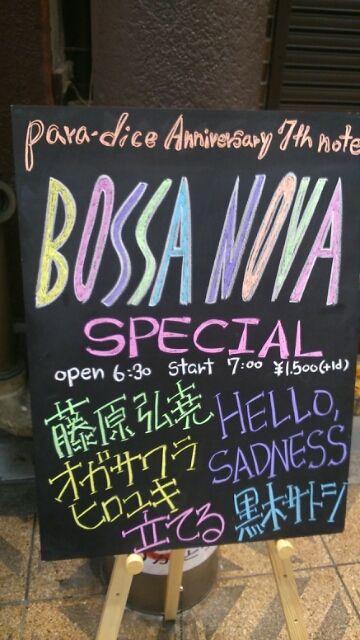 para-dice Anniversary 7th note
BOSSA NOVA
SPECIAL
open 6:30 start 7:00 ¥1.500(+1d)
藤原弘堯
HELLO,
SADNESS
オガサワラ
ヒロユキ
立てる
黒木サトシ